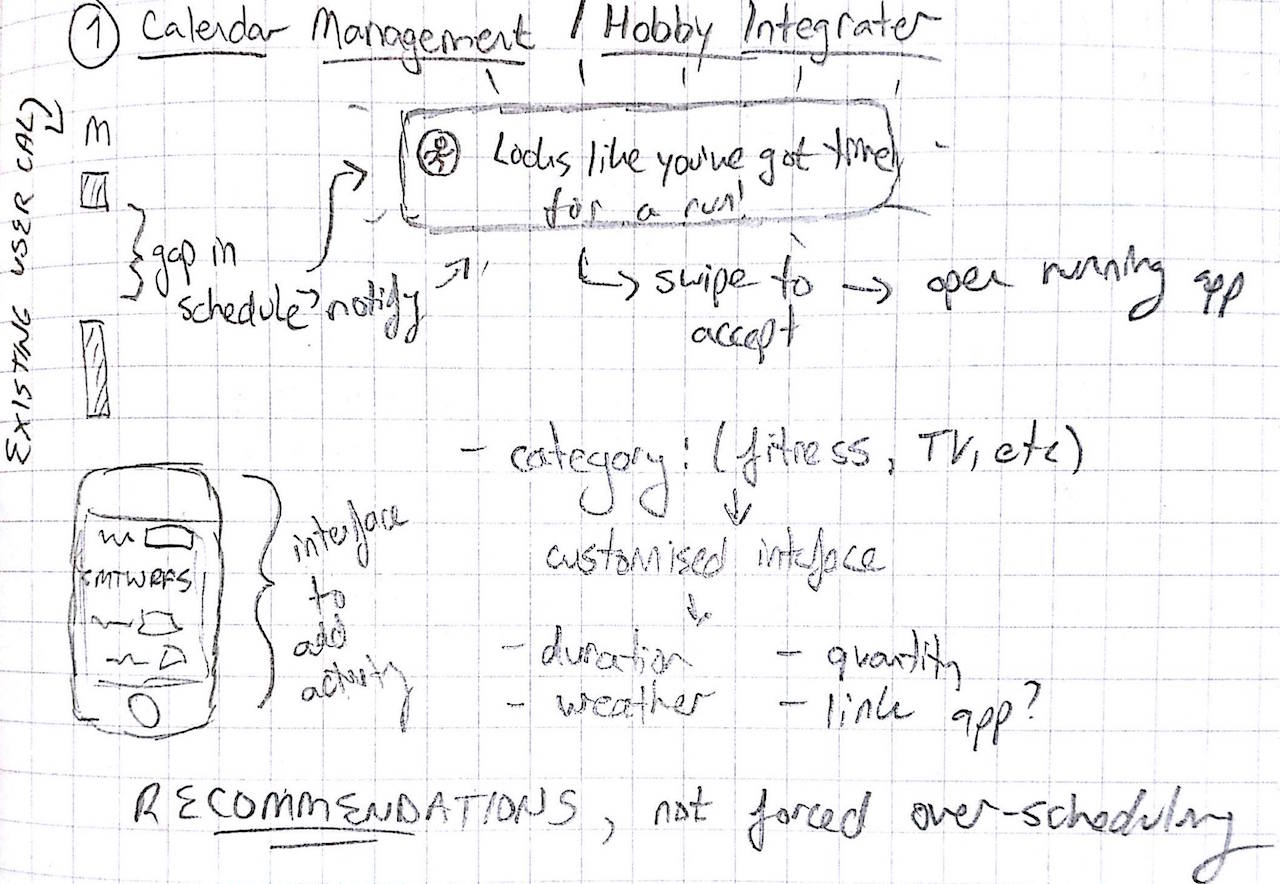 ① Calendar Management / Hobby Integrater
EXISTING USER CAL
M
Looks like you've got time
for a run!
gap in
schedule → notify
↳ swipe to → open running app
accept
- category: (fitness, TV, etc)
↓
customised interface
↓
- duration - quantity
- weather - link app?
SMTWRFS
interface
to
add
activity
RECOMMENDATIONS, not forced over-scheduling